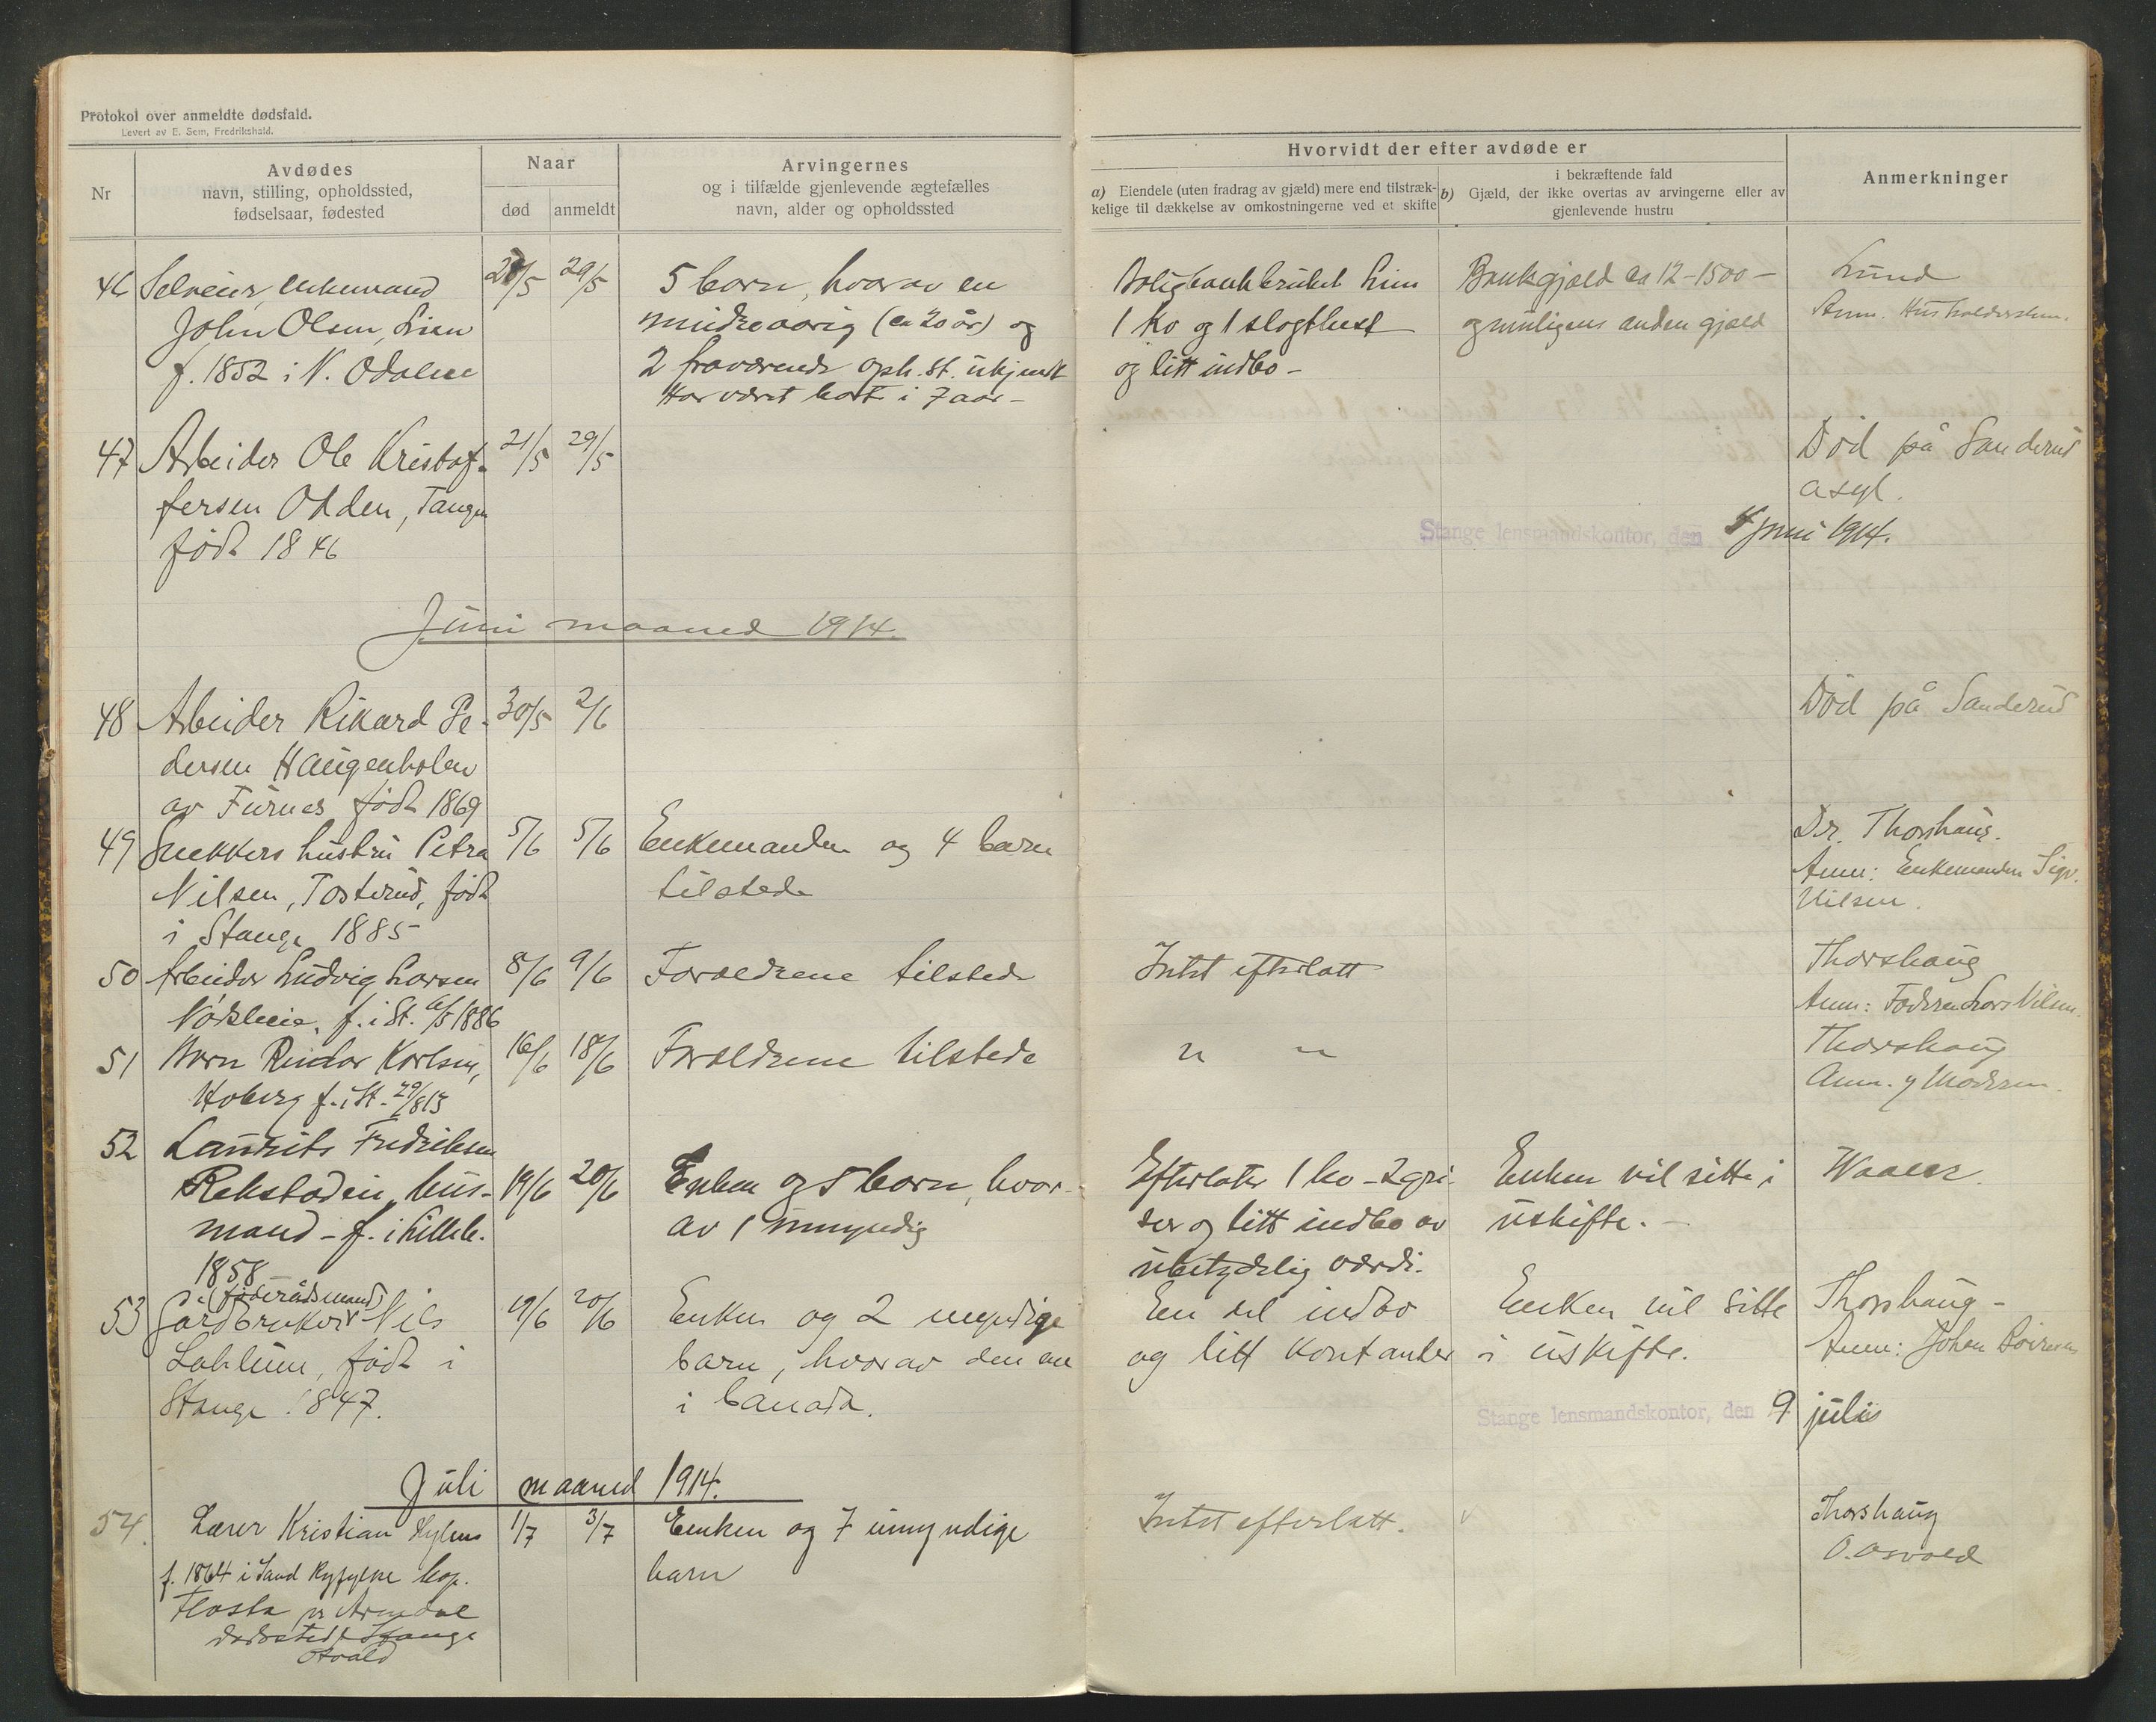 Protokol over anmeldte dødsfald.
Levert av E. Sem, Fredrikshald.
Nr
Avdødes
navn, stilling, opholdssted,
fødselsaar, fødested
Naar
død
anmeldt
Arvingernes
og i tilfælde gjenlevende ægtefælles
navn, alder og opholdssted
Hvorvidt der efter avdøde er
a) Eiendele (uten fradrag av gjæld) mere end tilstræk-
kelige til dækkelse av omkostningerne ved et skifte
i bekræftende fald
b) Gjæld, der ikke overtas av arvingerne eller av
gjenlevende hustru
Anmerkninger
46 Selveier, enkemand 29/5 5 barn, hvorav en 1 Bankgjæld ca 12-1500 - Lund
John Olsen, Lien mindreaarig (ca 20 år) og 1 ko og 1 slagthest og muligens anden gjæld Anm.
f. 1852 i N. Odalen 2 fraværende oph. st. ukjendt og litt indbo -
Har været bort i 7 aar -
47 Arbeider Ole Kristof- 21/5 29/5 Død på Sanderud
fersen Odden, Tangen asyl.
født 1846 Stange lensmandskontor, den juni 1914.
Juni maaned 1914.
48 Arbeider Rikard Pe- 30/5 2/6 Død på Sanderud
dersen Haugenholen
av Furnes født 1869
49 Snekkers hustru Petra 5/6 5/6 Enkemanden og 4 barn Dr. Thorshaug.
Nilsen, Tosterud, født tilstede Anm: Enkemanden Sigv.
i Stange 1885 Nilsen.
50 Arbeider Ludvig Larsen 8/6 9/6 Forældrene tilstede Intet efterlatt Thorshaug
f. i St. 6/5 1886 Anm: Faderen Lars Nilsen.
51 Barn Reidar Karlsen, 16/6 18/6 Forældrene tilstede " " Thorshaug
Hoberg f. i St. 29/8 13 Anm. Moderen.
52 Laurits Fredriksen
Rekstadeie, hus- 19/6 20/6 Enken og 5 barn, hvor- Efterlater 1 ko - 2 gri- Enken vil sitte i Waaler.
mand - f. i Lilleh. av 1 umyndig ser og litt indbo av uskifte. -
1858 ubetydelig værdi.
(føderådsmand)
53 Gårdbruker Nils 19/6 20/6 Enken og 2 myndige En del indbo Enken vil sitte Thorshaug -
Lahlum, født i barn, hvorav den en og litt kontanter i uskifte. Anm: Johan
Stange 1847. i Canada.
Stange lensmandskontor, den 9 juli
Juli maaned 1914.
54. Lærer Kristian Hylens 1/7 3/7 Enken og 7 umyndige Intet efterlatt. Thorshaug
f. 1864 i Sand Ryfylke bop. barn O. Osvold
Flosta pr Arendal
dødssted Stange
Osvald